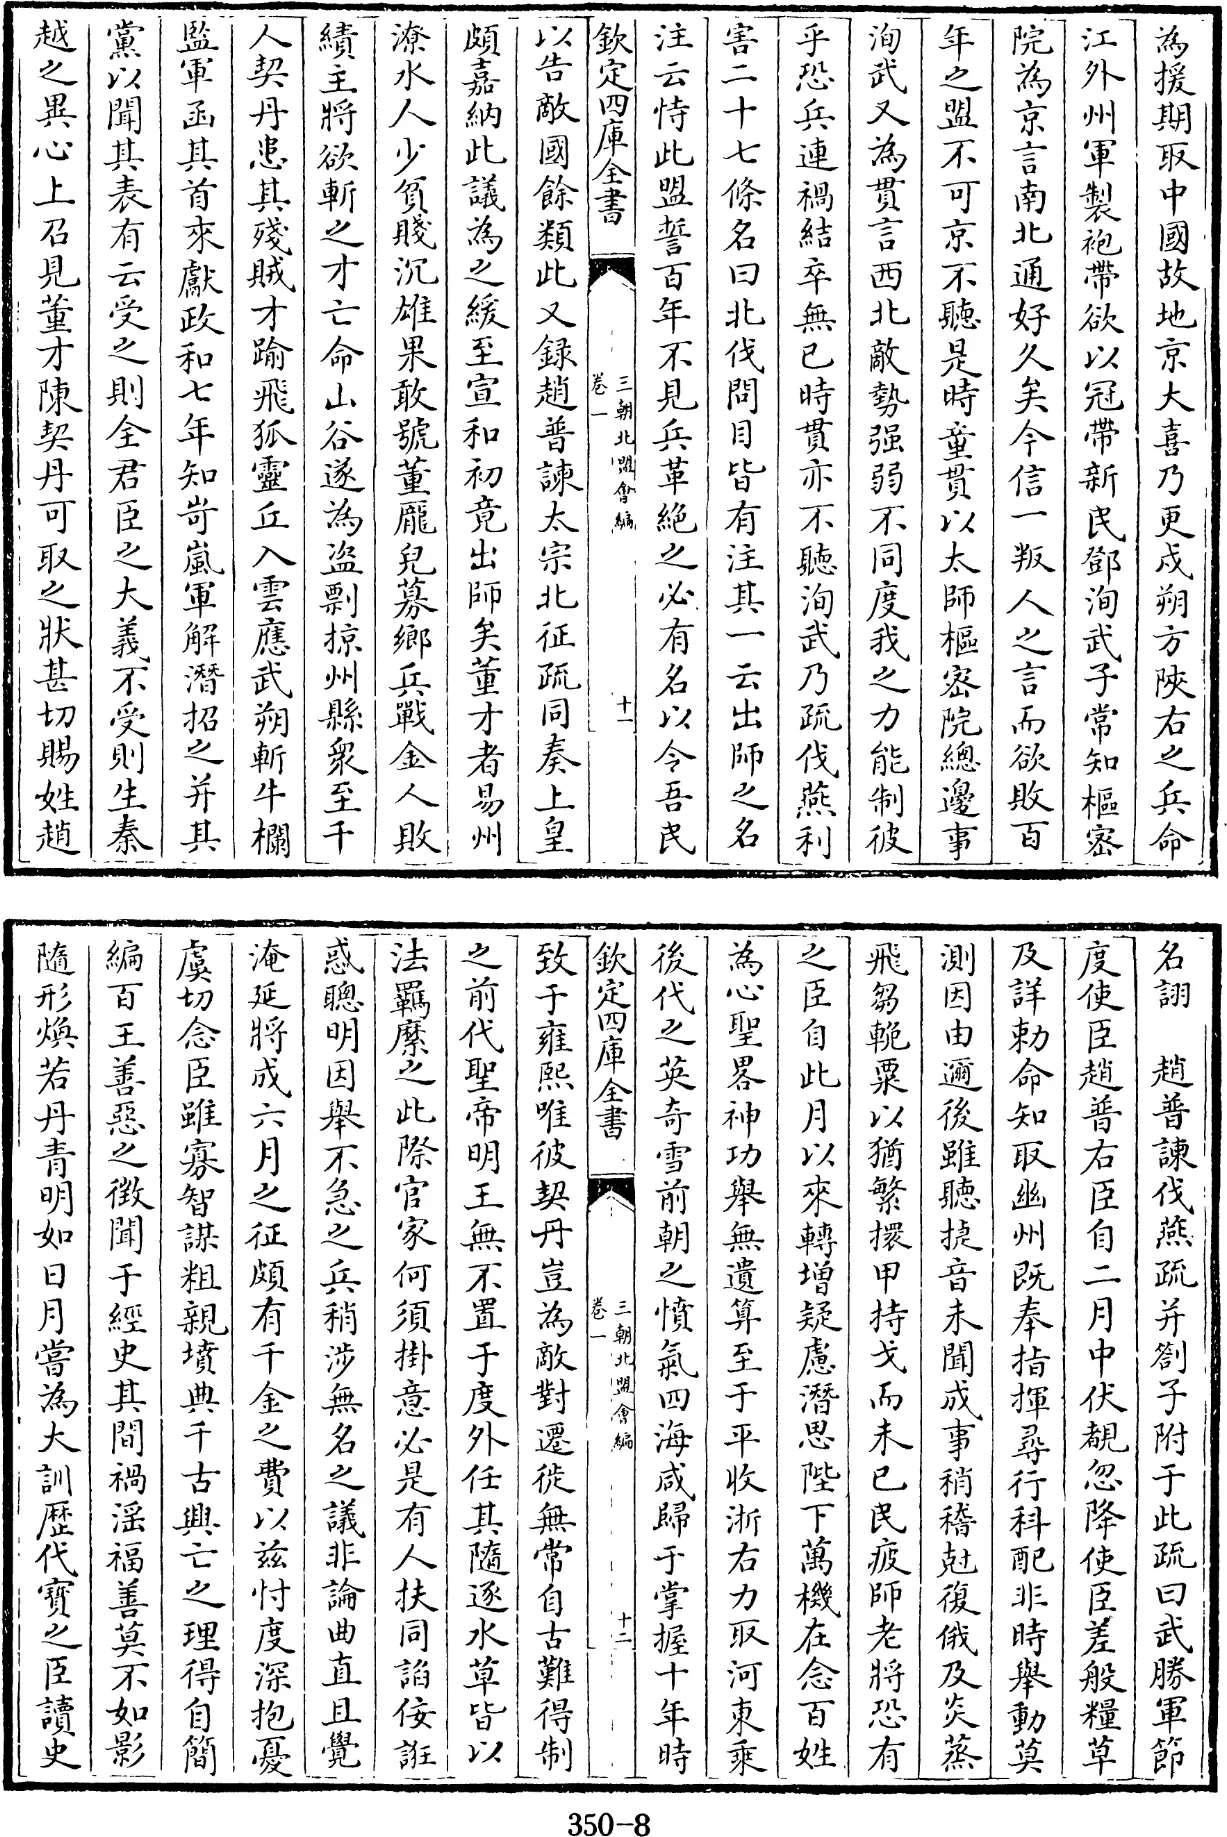 為援期取中國故地京大喜乃更戍朔方陜右之兵命
江外州軍製袍帶欲以冠帶新民鄧洵武子常知樞密
院為京言南北通好久矣今信一叛人之言而欲敗百
年之盟不可京不聽是時童貫以太師樞密院總邊事
洵武又為貫言西北敵勢强弱不同度我之力能制彼
乎恐兵連禍結卒無已時貫亦不聽洵武乃疏伐燕利
害二十七條名曰北伐問目皆有注其一云出師之名
注云恃此盟誓百年不見兵革絶之必有名以令吾民
欽定四庫全書
三朝北盟會編
卷一
十一
以告敵國餘類此又録趙普諫太宗北征疏同奏上皇
頗嘉納此議為之緩至宣和初竟出師矣董才者易州
潦水人少貧賤沉雄果敢號董龎兒募鄉兵戰金人敗
績主將欲斬之才亡命山谷遂為盗剽掠州縣衆至千
人契丹患其殘賊才踰飛狐靈丘入雲應武朔斬牛欄
監軍函其首來獻政和七年知岢嵐軍解潛招之并其
黨以聞其表有云受之則全君臣之大義不受則生秦
越之異心上召見董才陳契丹可取之狀甚切賜姓趙
名詡　趙普諫伐燕疏并劄子附于此疏曰武勝軍節
度使臣趙普右臣自二月中伏覩忽降使臣差般糧草
及詳勅命知取幽州既奉指揮尋行科配非時舉動莫
測因由邇後雖聽捷音未聞成事稍稽尅復俄及炎蒸
飛芻輓粟以猶繁擐甲持戈而未已民疲師老將恐有
之臣自此月以來轉增疑慮潛思陛下萬機在念百姓
為心聖畧神功舉無遺算至于平收浙右力取河東乘
後代之英奇雪前朝之憤氣四海咸歸于掌握十年時
欽定四庫全書
三朝北盟會編
卷一
十二
致于雍熙唯彼契丹豈為敵對遷徙無常自古難得制
之前代聖帝明王無不置于度外任其隨逐水草皆以
法羈縻之此際官家何須掛意必是有人扶同謟佞誑
惑聰明因舉不急之兵稍涉無名之議非論曲直且覺
淹延將成六月之征頗有千金之費以兹忖度深抱憂
虞切念臣雖寡智謀粗親墳典千古興亡之理得自簡
編百王善惡之徴聞于經史其間禍滛福善莫不如影
隨形煥若丹青明如日月嘗為大訓歴代寳之臣讀史
350-8